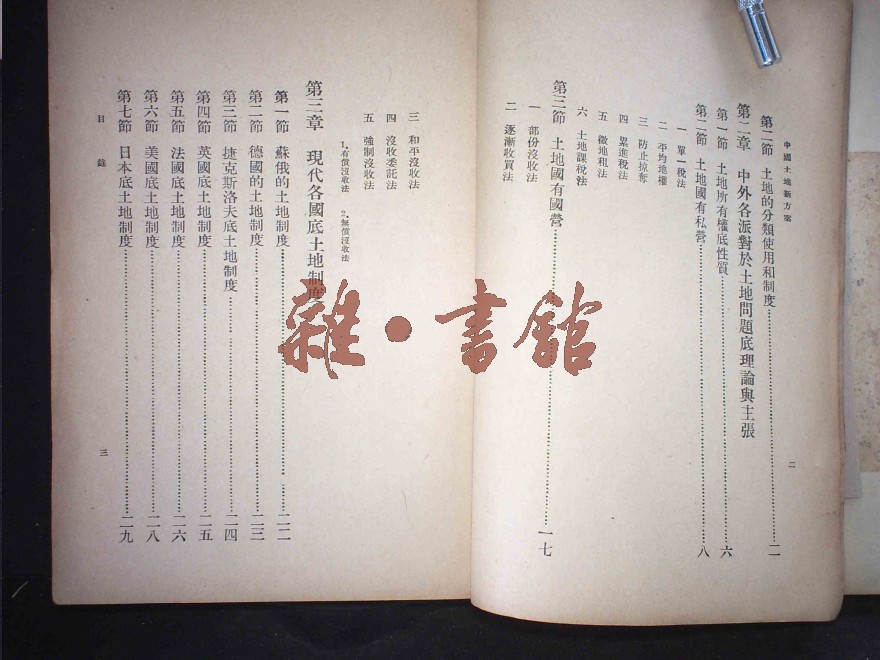 中國土地新方案
二
第二節 土地的分類使用和制度……二
第二章 中外各派對於土地問題底理論與主張
第一節 土地所有權底性質……六
第二節 土地國有私營……八
一 單一稅法
二 平均地權
三 防止掠奪
四 累進稅法
五 徵地租法
六 土地課稅法
第三節 土地國有國營……一七
一 部份沒收法
二 逐漸收買法
三 和平沒收法
四 沒收委託法
五 強制沒收法
1.有價沒收法 2.無價沒收法
第三章 現代各國底土地制度
第一節 蘇俄的土地制度……二二
第二節 德國的土地制度……二三
第三節 捷克斯洛夫底土地制度……二四
第四節 英國底土地制度……二五
第五節 法國底土地制度……二六
第六節 美國底土地制度……二八
第七節 日本底土地制度……二九
目錄
三
雜·書館